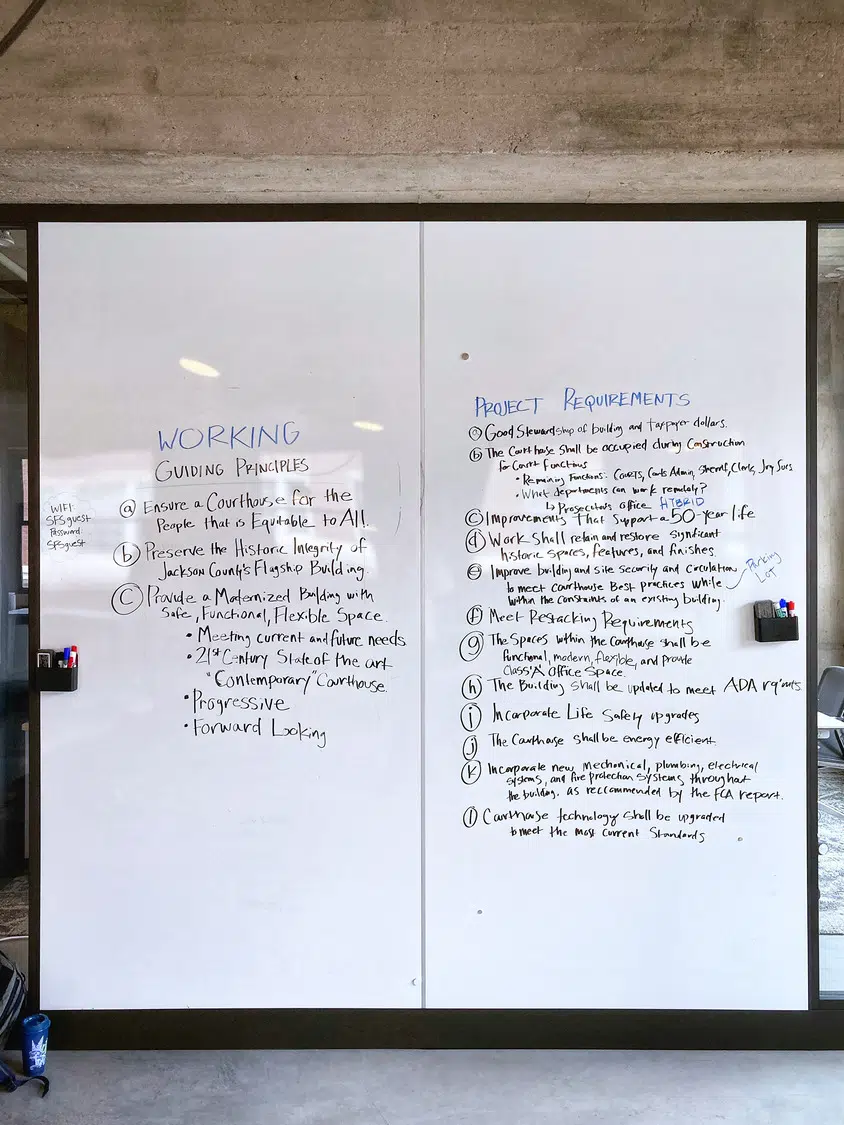 WORKING
GUIDING PRINCIPLES
WIFI:
SFSguest
Password
SFSguest
a Ensure a Courthouse for the
People that is Equitable to All.
b Preserve the Historic Integrity of
Jackson County's Flagship Building.
C Provide a Modernized Building with
Safe, Functional, Flexible Space.
• Meeting current and future needs
• 21st Century State of the art
"Contemporary" Courthouse.
• Progressive
• Forward Looking
PROJECT REQUIREMENTS
a Good Stewardship of building and taxpayer dollars.
b The Courthouse Shall be occupied during Construction
for Court Functions
• Remaining Functions: Courts, Courts Admin, Sheriff, Clerk, Jury Svcs
• What departments can work remotely?
↳ Prosecutors office HYBRID
C Improvements That Support a 50-year life
d Work Shall retain and restore significant
historic spaces, features, and finishes.
e Improve building and site security and Circulation
to meet courthouse Best practices while
within the constraints of an existing building.
Parking
Lot
f Meet Restacking Requirements
g The Spaces within the Courthouse shall be
functional, modern, flexible, and provide
Class 'A' Office Space.
h The Building shall be updated to meet ADA rq'mts
i Incorporate Life Safety upgrades
j The Courthouse shall be energy efficient
K Incorporate new mechanical, plumbing, electrical
systems, and fire protection systems throughout
the building. as reccommended by the FCA report.
l Courthouse technology shall be upgraded
to meet the most current Standards